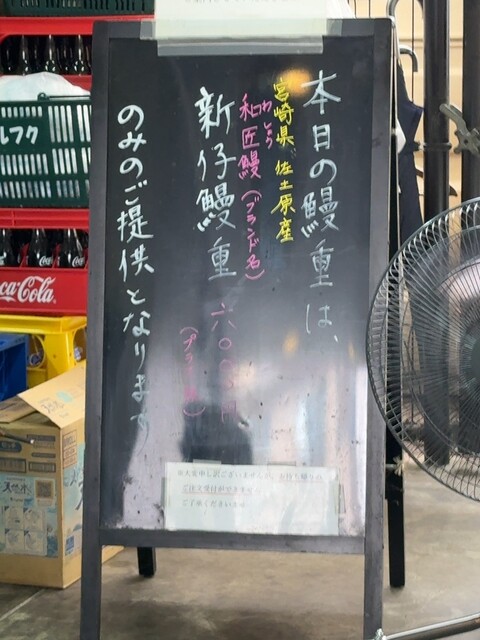 本日の鰻重は、
宮崎県 佐土原産
わしょう
和匠鰻(ブランド名)
新仔鰻重 六〇〇〇円
のみのご提供となります
※大変申し訳ございませんが、お持ち帰りの
ご注文受付ができません。
ご了承くださいませ。
レフク
Coca-Cola
天然水